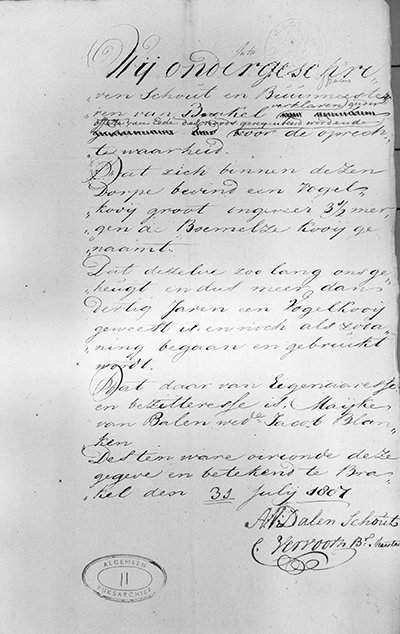 Wij ondergeschre-
„ven Schout en Buurmeeste-
„ren van Brakel verklaren onder
offerte van Eede des noods gerequireerd wordende
voor de oprech-
„te waarheid.
Dat zich binnen dezen
Dorpe bevind een Vogel
„kooij groot ongeveer 3½ mer-
„gen de Boemelze kooij ge
„naamt.
Dat dezelve zoo lang ons ge-
„heugt en dus meer dan
dertig Jaren een Vogelkooij
geweest is en noch als zoda
„ning begaan en gebruickt
wordt.
Dat daar van Eigenaaresse
en bezitteresse is, Maijke
van Balen wedе Jacob Blan-
„ken
Des ten ware oirconde deze
gegeve en betekend te Bra-
„kel den 31 July 1807
Dalen Schout
C. Vervoorn Br. Meester
ALGEMEEN
II
RIJKSARCHIEF